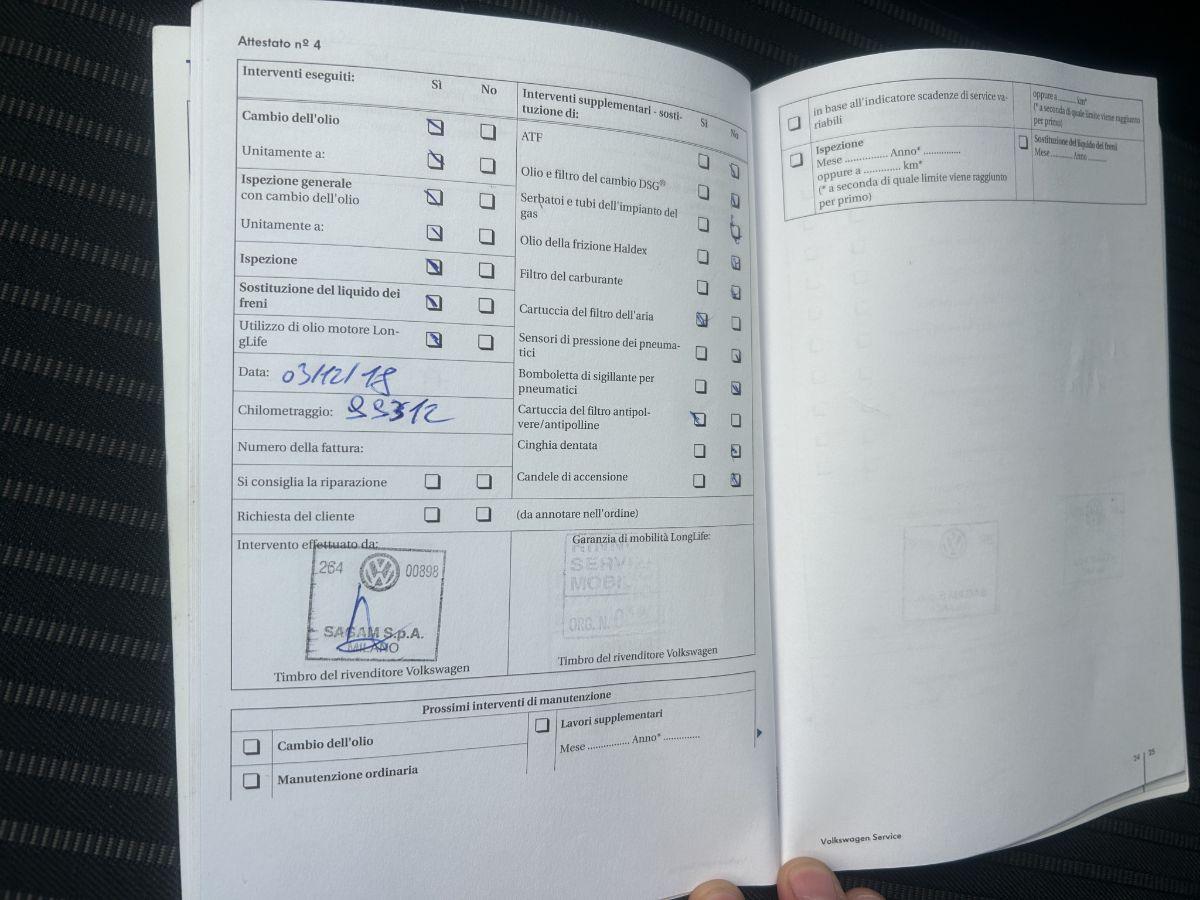 Attestato nº 4
Interventi eseguiti:
Sì
No
Cambio dell'olio
Unitamente a:
Ispezione generale
con cambio dell'olio
Unitamente a:
Ispezione
Sostituzione del liquido dei
freni
Utilizzo di olio motore Lon-
gLife
Data: 03/12/18
Chilometraggio:
Numero della fattura:
Si consiglia la riparazione
Richiesta del cliente
Interventi supplementari - sosti-
tuzione di:
Sì
No
ATF
Olio e filtro del cambio DSG®
Serbatoi e tubi dell'impianto del
gas
Olio della frizione Haldex
Filtro del carburante
Cartuccia del filtro dell'aria
Sensori di pressione dei pneuma-
tici
Bomboletta di sigillante per
pneumatici
Cartuccia del filtro antipol-
vere/antipolline
Cinghia dentata
Candele di accensione
(da annotare nell'ordine)
Intervento effettuato da:
264
00898
SAGAM S.p.A.
MILANO
Timbro del rivenditore Volkswagen
Garanzia di mobilità LongLife:
ORG. N.
Timbro del rivenditore Volkswagen
Prossimi interventi di manutenzione
Cambio dell'olio
Manutenzione ordinaria
Lavori supplementari
Mese ................ Anno* ..............
in base all'indicatore scadenze di service va-
riabili
Ispezione
Mese ................ Anno* ..............
oppure a .............. km*
(* a seconda di quale limite viene raggiunto
per primo)
oppure a .......... km*
(* a seconda di quale limite viene raggiunto
per primo)
Sostituzione del liquido dei freni
Mese .......... Anno ..........
24
25
Volkswagen Service